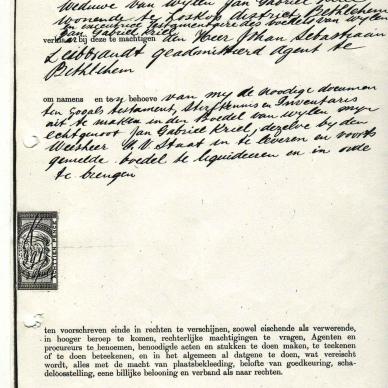 Weduwe van wijlen Jan Gabriel
Wonende te Loskop District Bethlehem
en executrice testamentair des boedels van wijlen
Jan Gabriel Kriel
verklaart bij deze te machtigen den Heer Johan Sebastiaan
Leibbrandt geadmitteerd Agent te
Bethlehem
om namens en te behoeve van my de noodige documen
ten zooals testament, Sterfkennis en Inventaris
uit te maken in den Boedel van wylen myn
echtgenoot Jan Gabriel Kriel, dezelve by den
Weesheer O.V. Staat in te leveren en voorts
gemelde boedel te liquideeren en in orde
te brengen
ten voorschreven einde in rechten te verschijnen, zoowel eischende als verwerende,
in hooger beroep te komen, rechterlijke machtigingen te vragen, Agenten en
procureurs te benoemen, benoodigde acten en stukken te doen maken, te teekenen
of te doen beteekenen, en in het algemeen al datgene te doen, wat vereischt
wordt, alles met de macht van plaatsbekleeding, belofte van goedkeuring, scha-
deloosstelling, eene billijke belooning en verband als naar rechten.